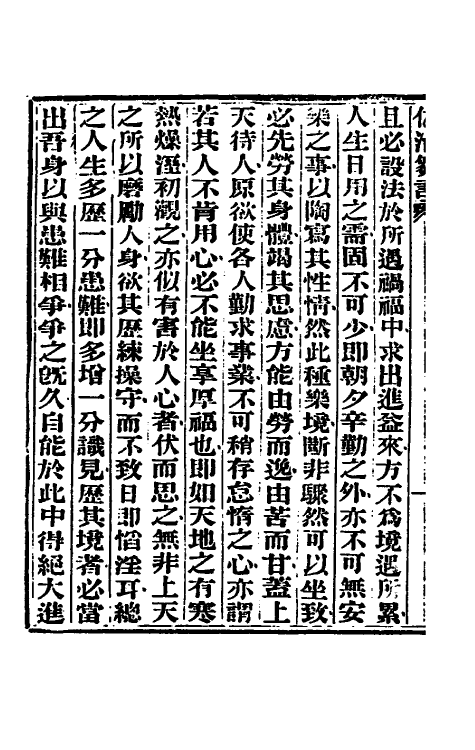 佐治芻言
且必設法於所遇禍福中求出進益來方不爲境遇所累
人生日用之需固不可少即朝夕辛勤之外亦不可無安
樂之事以陶寫其性情然此種樂境斷非驟然可以坐致
必先勞其身體竭其思慮方能由勞而逸由苦而甘蓋上
天待人原欲使各人勤求事業不可稍存怠惰之心亦謂
若其人不肯用心必不能坐享厚福也即如天地之有寒
熱燥溼初觀之亦似有害於人心者伏而思之無非上天
之所以磨勵人身欲其歷練操守而不致日即慆淫耳總
之人生多歷一分患難即多增一分識見歷其境者必當
出吾身以與患難相爭爭之旣久自能於此中得絕大進